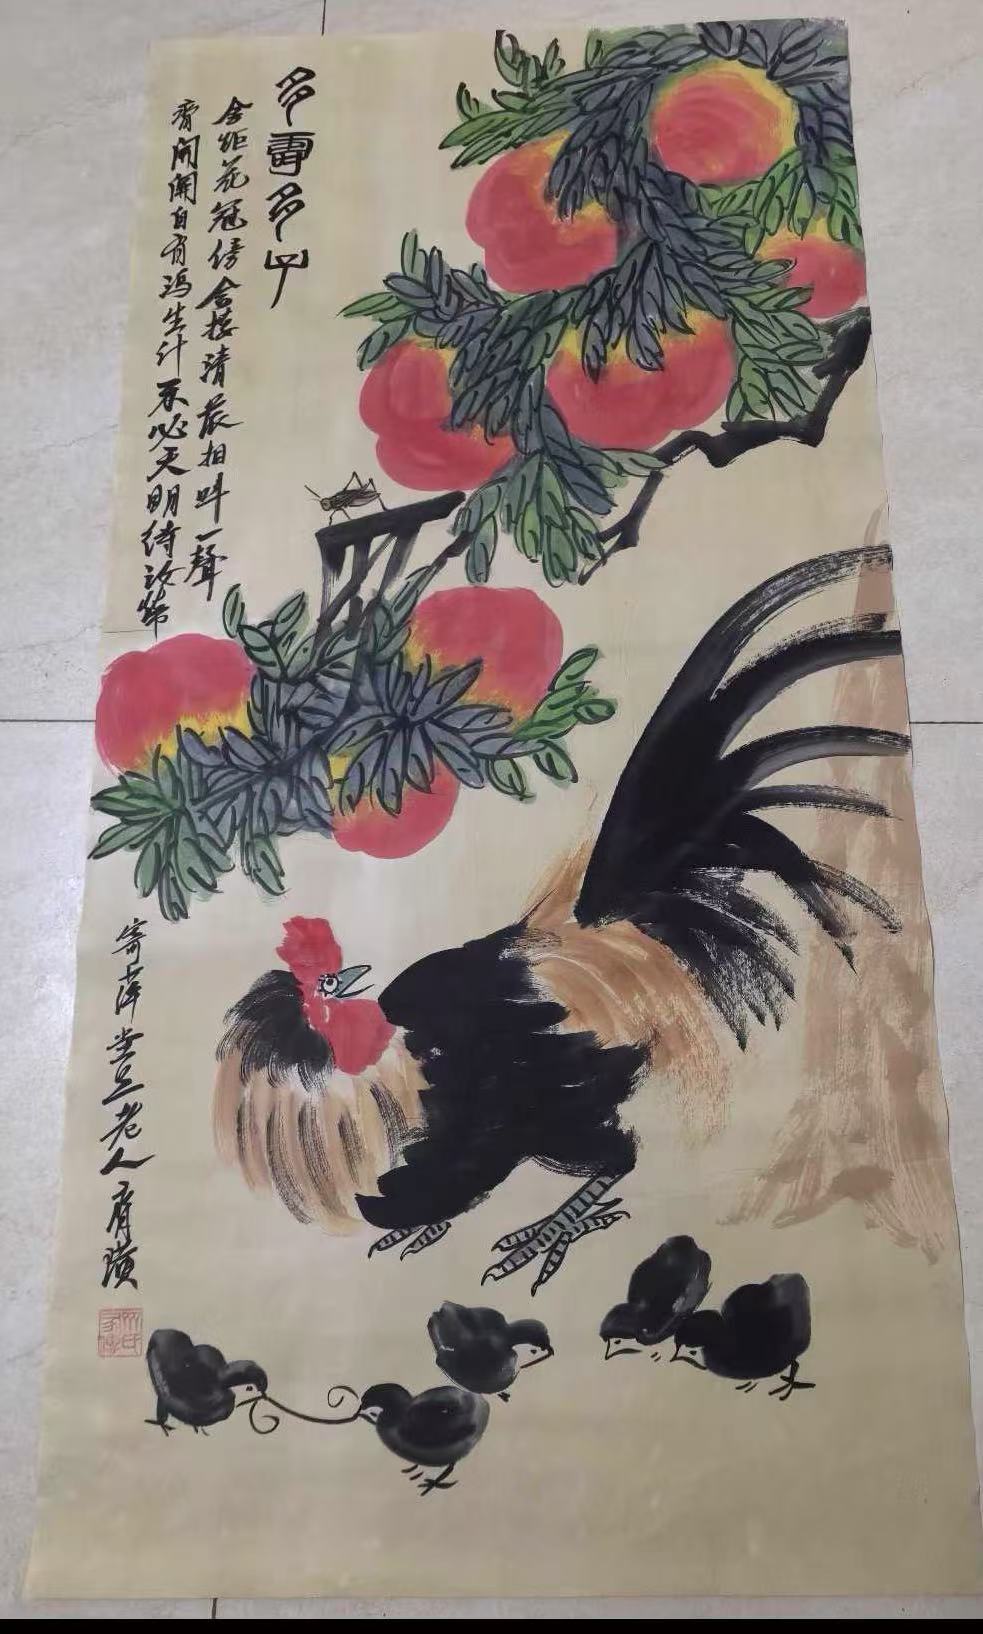 多壽多子
金距花冠傍舍棲清晨相叫一聲
齊開關自有馮生計不必天明待汝啼
寄萍堂上老人齊璜